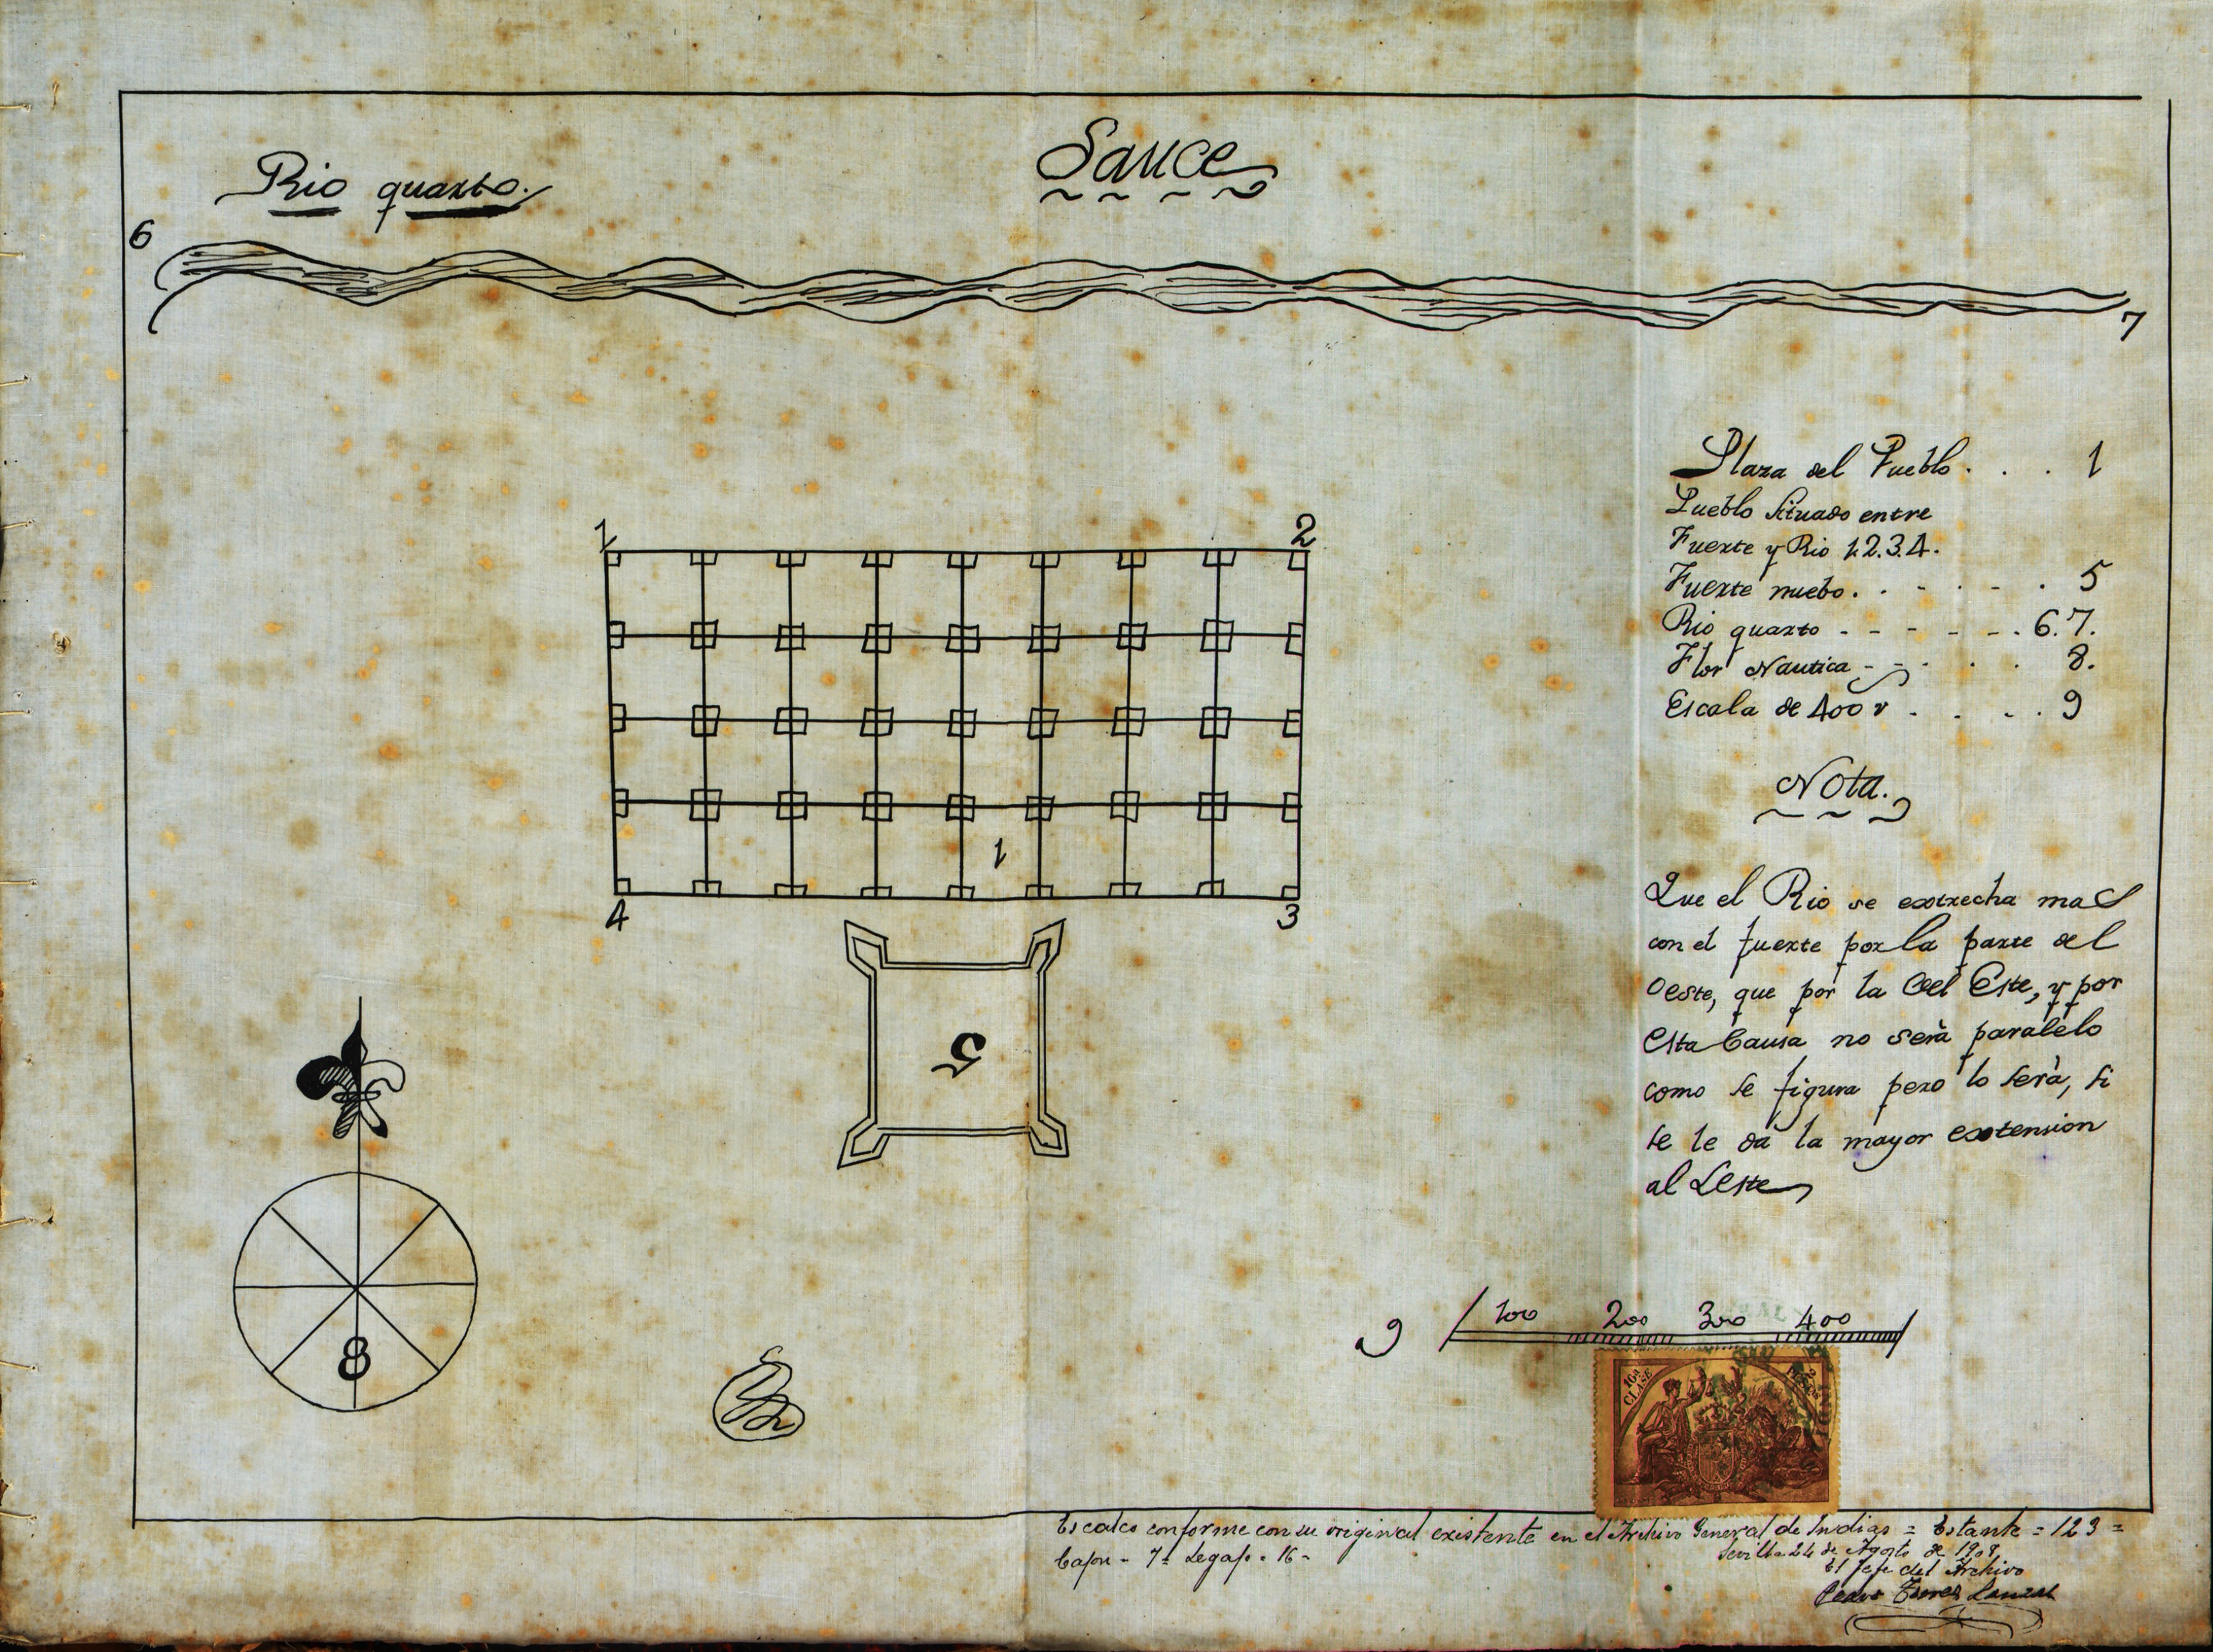 Sauce
Rio quarto.
6
7
1
2
Plaza del Pueblo . . . 1
Pueblo situado entre
Fuerte y Rio 1.2.3.4.
Fuerte nuebo . . - . - . 5
Rio quarto - - - - - . 6.7.
Flor Nautica - - . . . 8.
Escala de 400 v . . - . 9
Nota.
Que el Rio se extrecha mas
con el fuerte por la parte del
Oeste, que por la del Este, y por
esta Causa no serà paralelo
como se figura pero lo serà, si
se le da la mayor extension
al Leste
1
4
3
5
8
9
100 200 300 400
16ª CLASE
Es calco conforme con su original existente en el Archivo General de Indias = Estante = 123 =
Cajon - 7= Legajo - 16 -
Sevilla 24 de Agosto de 1908
El Jefe del Archivo
Pedro Torres Lanzas